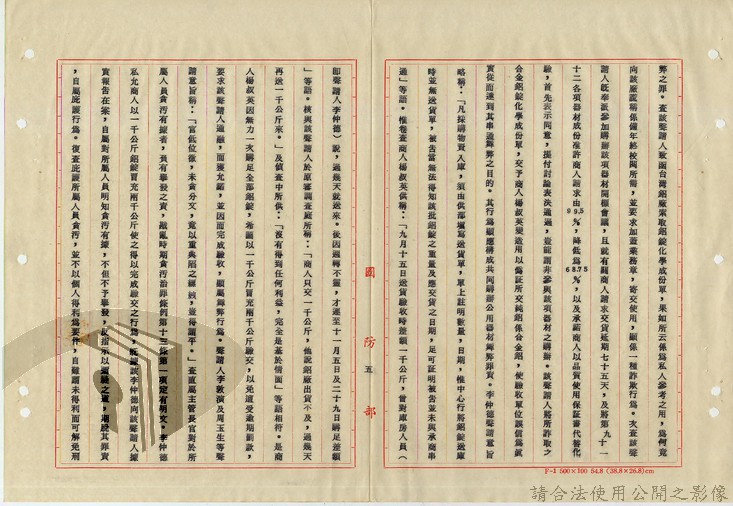 弊之罪。查該聲請人致函台灣鋁廠索取鋁錠化學成份單，果如所云係為私人參考之用，為何竟
向該廠謊稱係備年終校閱所需，並要求加蓋業務章，寄交使用，顯係一種詐欺行為。次查該聲
請人既奉派參加購辦該項器材開標會議，且就有關商人請求交貨延期七十五天，及將第九十一
十二各項器材成份准許商人請求由99.5%，降低為68.75%，以及承諾商人以品質使用保証書代替化
驗，首先表示同意，提付討論表決通過，豈能謂非參與該項器材之購辦。該聲請人將所詐取之
合金鋁錠化學成份單，交予商人楊叔英變造用以偽証所交純鋁係合金鋁，使驗收單位誤信為真
實從而達到其串通舞弊之目的。其行為顯應構成共同購辦公用器材舞弊罪責。李仲德聲請意旨
略稱：「凡採購物資入庫，須由供部填寫送貨單，單上註明數量，日期，惟中心行將鋁錠送庫
時並無送貨單，被告當無法得知該批鋁錠之重量及應交貨之日期，足可証明被告並未與承商串
通」等語。惟卷查商人楊叔英供稱：「九月十五日送貨驗收時差額一千公斤，曾對庫房人員（
國防部
五
即聲請人李仲德）說，過幾天就送來。後因週轉不靈，才遲至十一月五日及二十九日購足差額
」等語。核與該聲請人於原審調查庭所稱：「商人只交一千公斤，他說鋁廠出貨不及，過幾天
再送一千公斤來。」及偵查中所供：「沒有得到任何利益，完全是基於情面」等語相符。是商
人楊叔英因無力一次購足全部鋁錠，希圖以一千公斤冒充兩千公斤驗交，以免遭受逾期罰款，
要求該聲請人通融，而獲允諾，並因而完成驗收，顯屬舞弊行為。聲請人李敦演及周玉生等聲
請意旨稱：「官低位微，未貪分文，竟以重典陷之縲絏，豈得謂平。」查直屬主管長官對於所
屬人員貪污有據者，負有舉發之責，戡亂時期貪污治罪條例第十三條第一項定有明文。李仲德
私允商人以一千公斤鋁錠冒充兩千公斤使之得以完成驗交之行為，既據該李仲德向該聲請人據
實報告在案，自屬對所屬人員明知貪污有據，不但不予舉發，反指示以
，自屬庇護行為。復查庇護所屬人員貪污，並不以個人得利為要件，自難謂未得利而可解免刑
F-1 500×100 54.8 (38.8×26.8)cm
請合法使用公開之影像